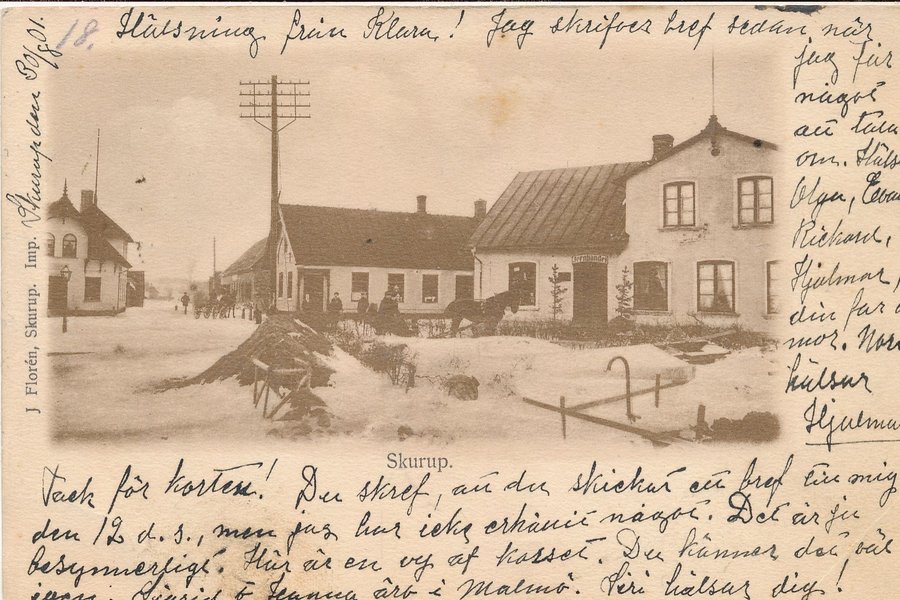 18. Hälsning från Klara! Jag skrifver bref sedan, när
jag får
något
att tala
om. Häls
Olga,
Rickard,
Hjalmar,
din far o
mor.
hälsar
Hjalma
Skurup den 30/8 01.
J Florén, Skurup. Imp.
Jernhandel
Skurup.
Tack för korten! Du skref, att du skickat ett bref till mig
den 12 d. s., men jag har icke erhållit något. Det är ju
besynnerligt. Här är en vy af korset. Du känner det väl
igen. Sigrid o Hanna äro i Malmö. hälsar dig!